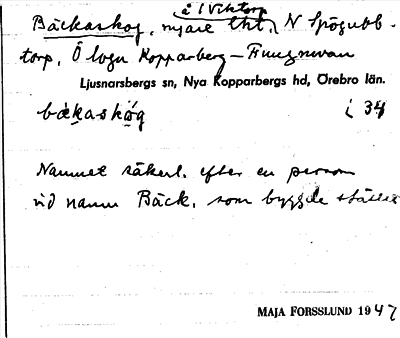 å 1 Viktorp
Bäckaskog, nyare lht, N Spögubb-
torp, Ö logn Kopparberg–Finngruvan
Ljusnarsbergs sn, Nya Kopparbergs hd, Örebro län.
bäkaskåg i 34
Namnet säkerl. efter en person
vid namn Bäck, som byggde stället
MAJA FORSSLUND 1947